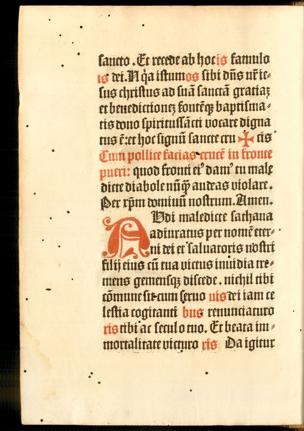 sancto. Et recede ab hoc is famulo
is dei. Nā q̄ istum os sibi dn̄s nr̄ ie-
sus christus ad suā sanctā gratiaȝ
et benedictioneȝ fontēqȝ baptisma-
tis dono spiritussācti vocare digna
tus ē: et hoc signū sancte cru ✠ cis
Cum pollice facias crucē in fronte
pueri: quod fronti ei' dam' tu male
dicte diabole nūqȝ audeas violare.
Per xp̄m dominū nostrum. Amen.
Audi maledicte sathana
adiuratus per nomē eter-
ni dei et saluatoris nostri
filij eius cū tua victus inuidia tre-
mens gemensqȝ discede. nichil tibi
cōmune sit cum seruo uis dei iam ce
lestia cogitanti bus renunciaturo
ris tibi ac seculo tuo. Et beata im-
mortalitate victuro ris Da igitur